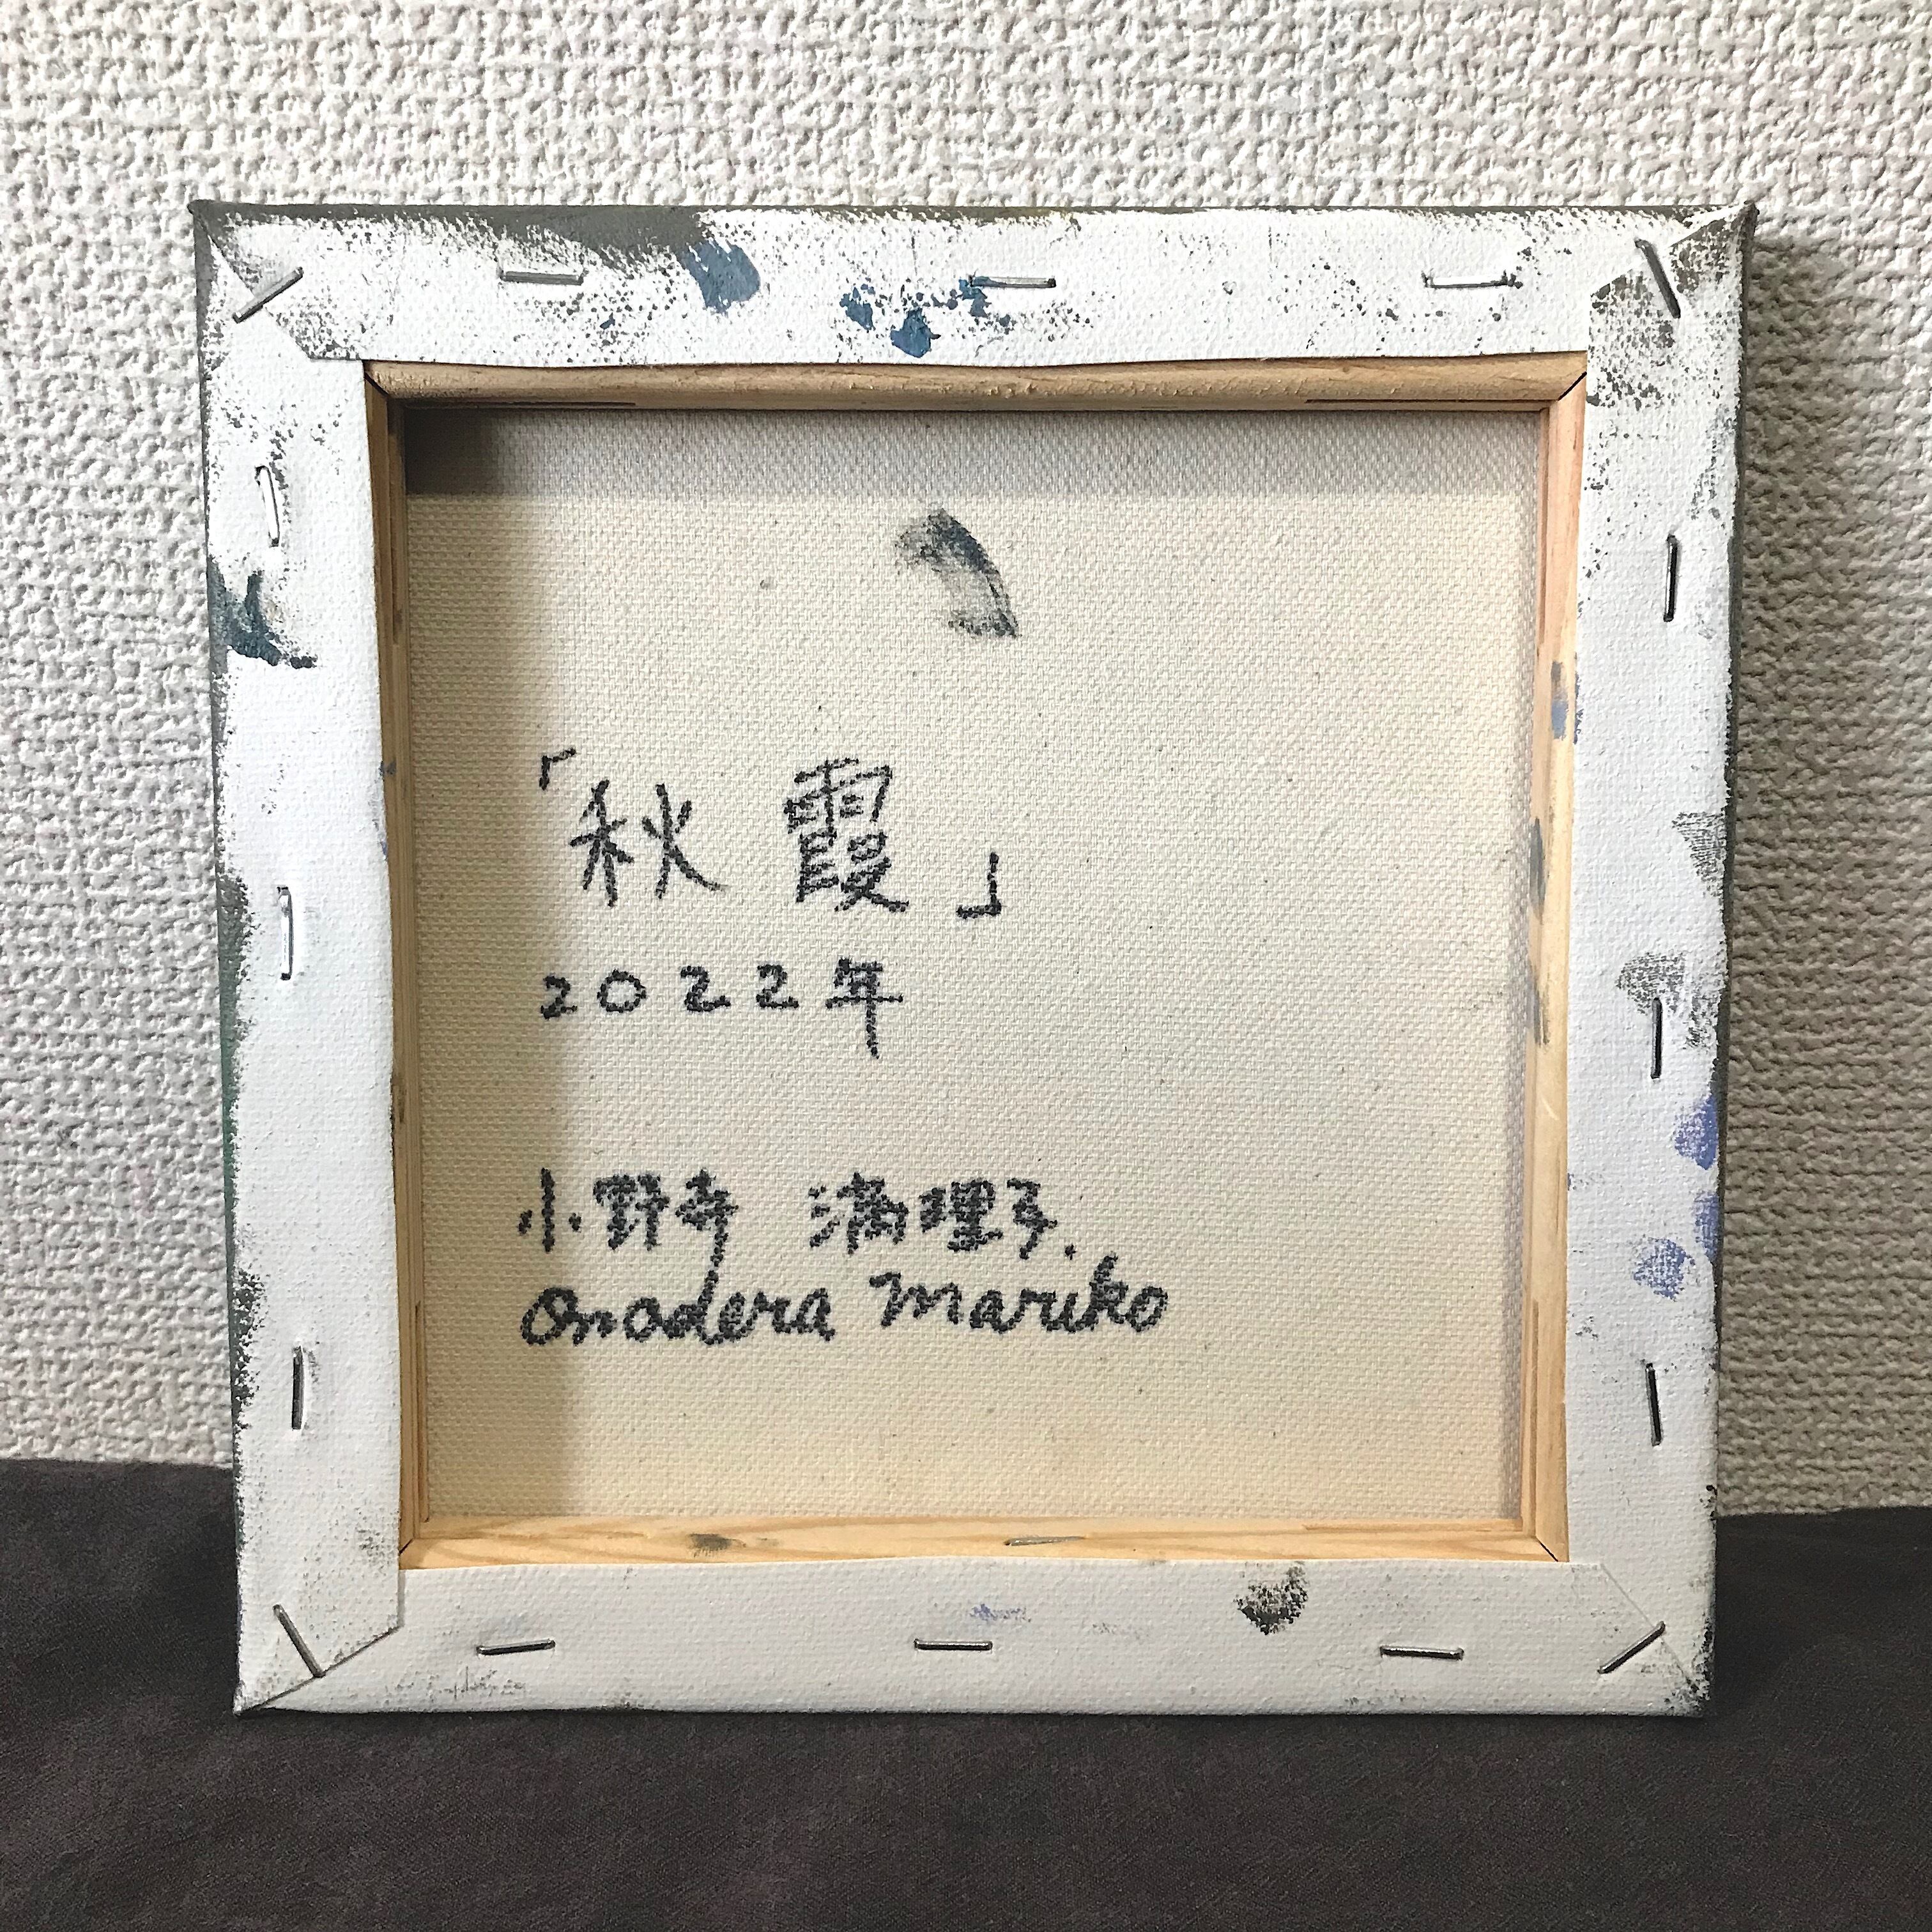 「秋霞」
2022年
小野寺 満理子.
Onodera Mariko